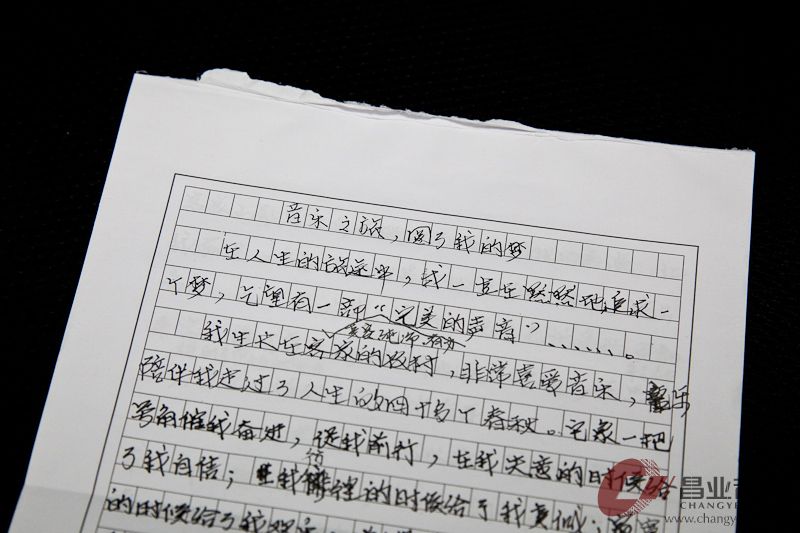 音乐之旅，圆了我的梦
在人生的旅途中，我一直在默默地追求一
个梦，它望有一部“完美的声音”……。
美容纯净有力
我生长在客家的农村，非常喜爱音乐，音乐
陪伴我走过了人生的四十多个春秋。它象一把
号角催我奋进，促我前行，在我失意的时候给
了我自信；在我彷徨的时候给了我
的时候给了我欢乐，
昌业
CHANGYE
www.changy